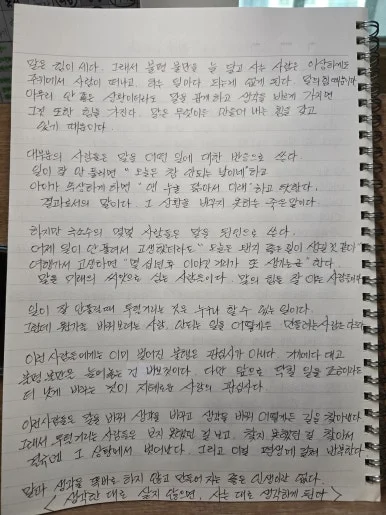 말은 힘이 세다. 그래서 불평 불만을 늘 달고 사는 사람은 야속하게도
주위에서 사람이 떠나고, 하는 일마다 되는게 없게 된다. 말의 힘 때문이다.
아무리 안 좋은 상황이더라도 말을 곱게 하고 생각을 바르게 가지면
그것 또한 힘을 가진다. 말은 무엇이든 만들어 내는 힘을 갖고
있기 때문이다.
대부분의 사람들은 말을 어떤 일에 대한 반응으로 쓴다.
일이 잘 안 풀리면 "오늘은 잘 안되는 날이네"하고
아이가 속상하게 하면 "앤 누굴 닮아서 이래"하고 탓한다.
결과로서의 말이다. 그 상황을 바꾸지 못하는 죽은말이다.
하지만 극소수의 몇몇 사람들은 말을 원인으로 쓴다.
어제 일이 안 풀려서 고생했더라도 "오늘은 왠지 좋은 일이 생길것 같다"
여행가서 고생하면 "몇 십년후 이야깃거리가 또 생겼는걸" 한다.
말을 미래의 씨앗으로 심는 사람들이다. 말의 힘을 잘 아는 사람들이다
일이 잘 안풀릴때 투덜거리는 것은 누구나 할 수 있는 일이다.
그런데 뭔가를 바꿔보려는 사람, 안되는 일을 어떻게든 만들려는 사람은 다르다
이런 사람들에게는 이미 벌어진 불행은 관심사가 아니다. 거기에다 대고
불평 불만을 늘어놓는 건 바보짓이다. 다만 앞으로 닥칠 일을 조금이라도
더 낫게 바꾸는 것이 지혜로운 사람의 관심사다.
이런사람들은 말을 바꿔 생각을 바꾸고 생각을 바꿔 어떻게든 길을 찾아낸다
그래서 투덜거리는 사람들은 보지 못했던 걸 보고, 찾지 못했던 걸 찾아서
결국엔 그 상황에서 벗어난다. 그리고 이걸 평생에 걸쳐 반복한다
말과 생각을 똑바로 하지 않고 만들어 지는 좋은 인생이란 없다.
< 생각한 대로 살지 않으면, 사는 대로 생각하게 된다 >